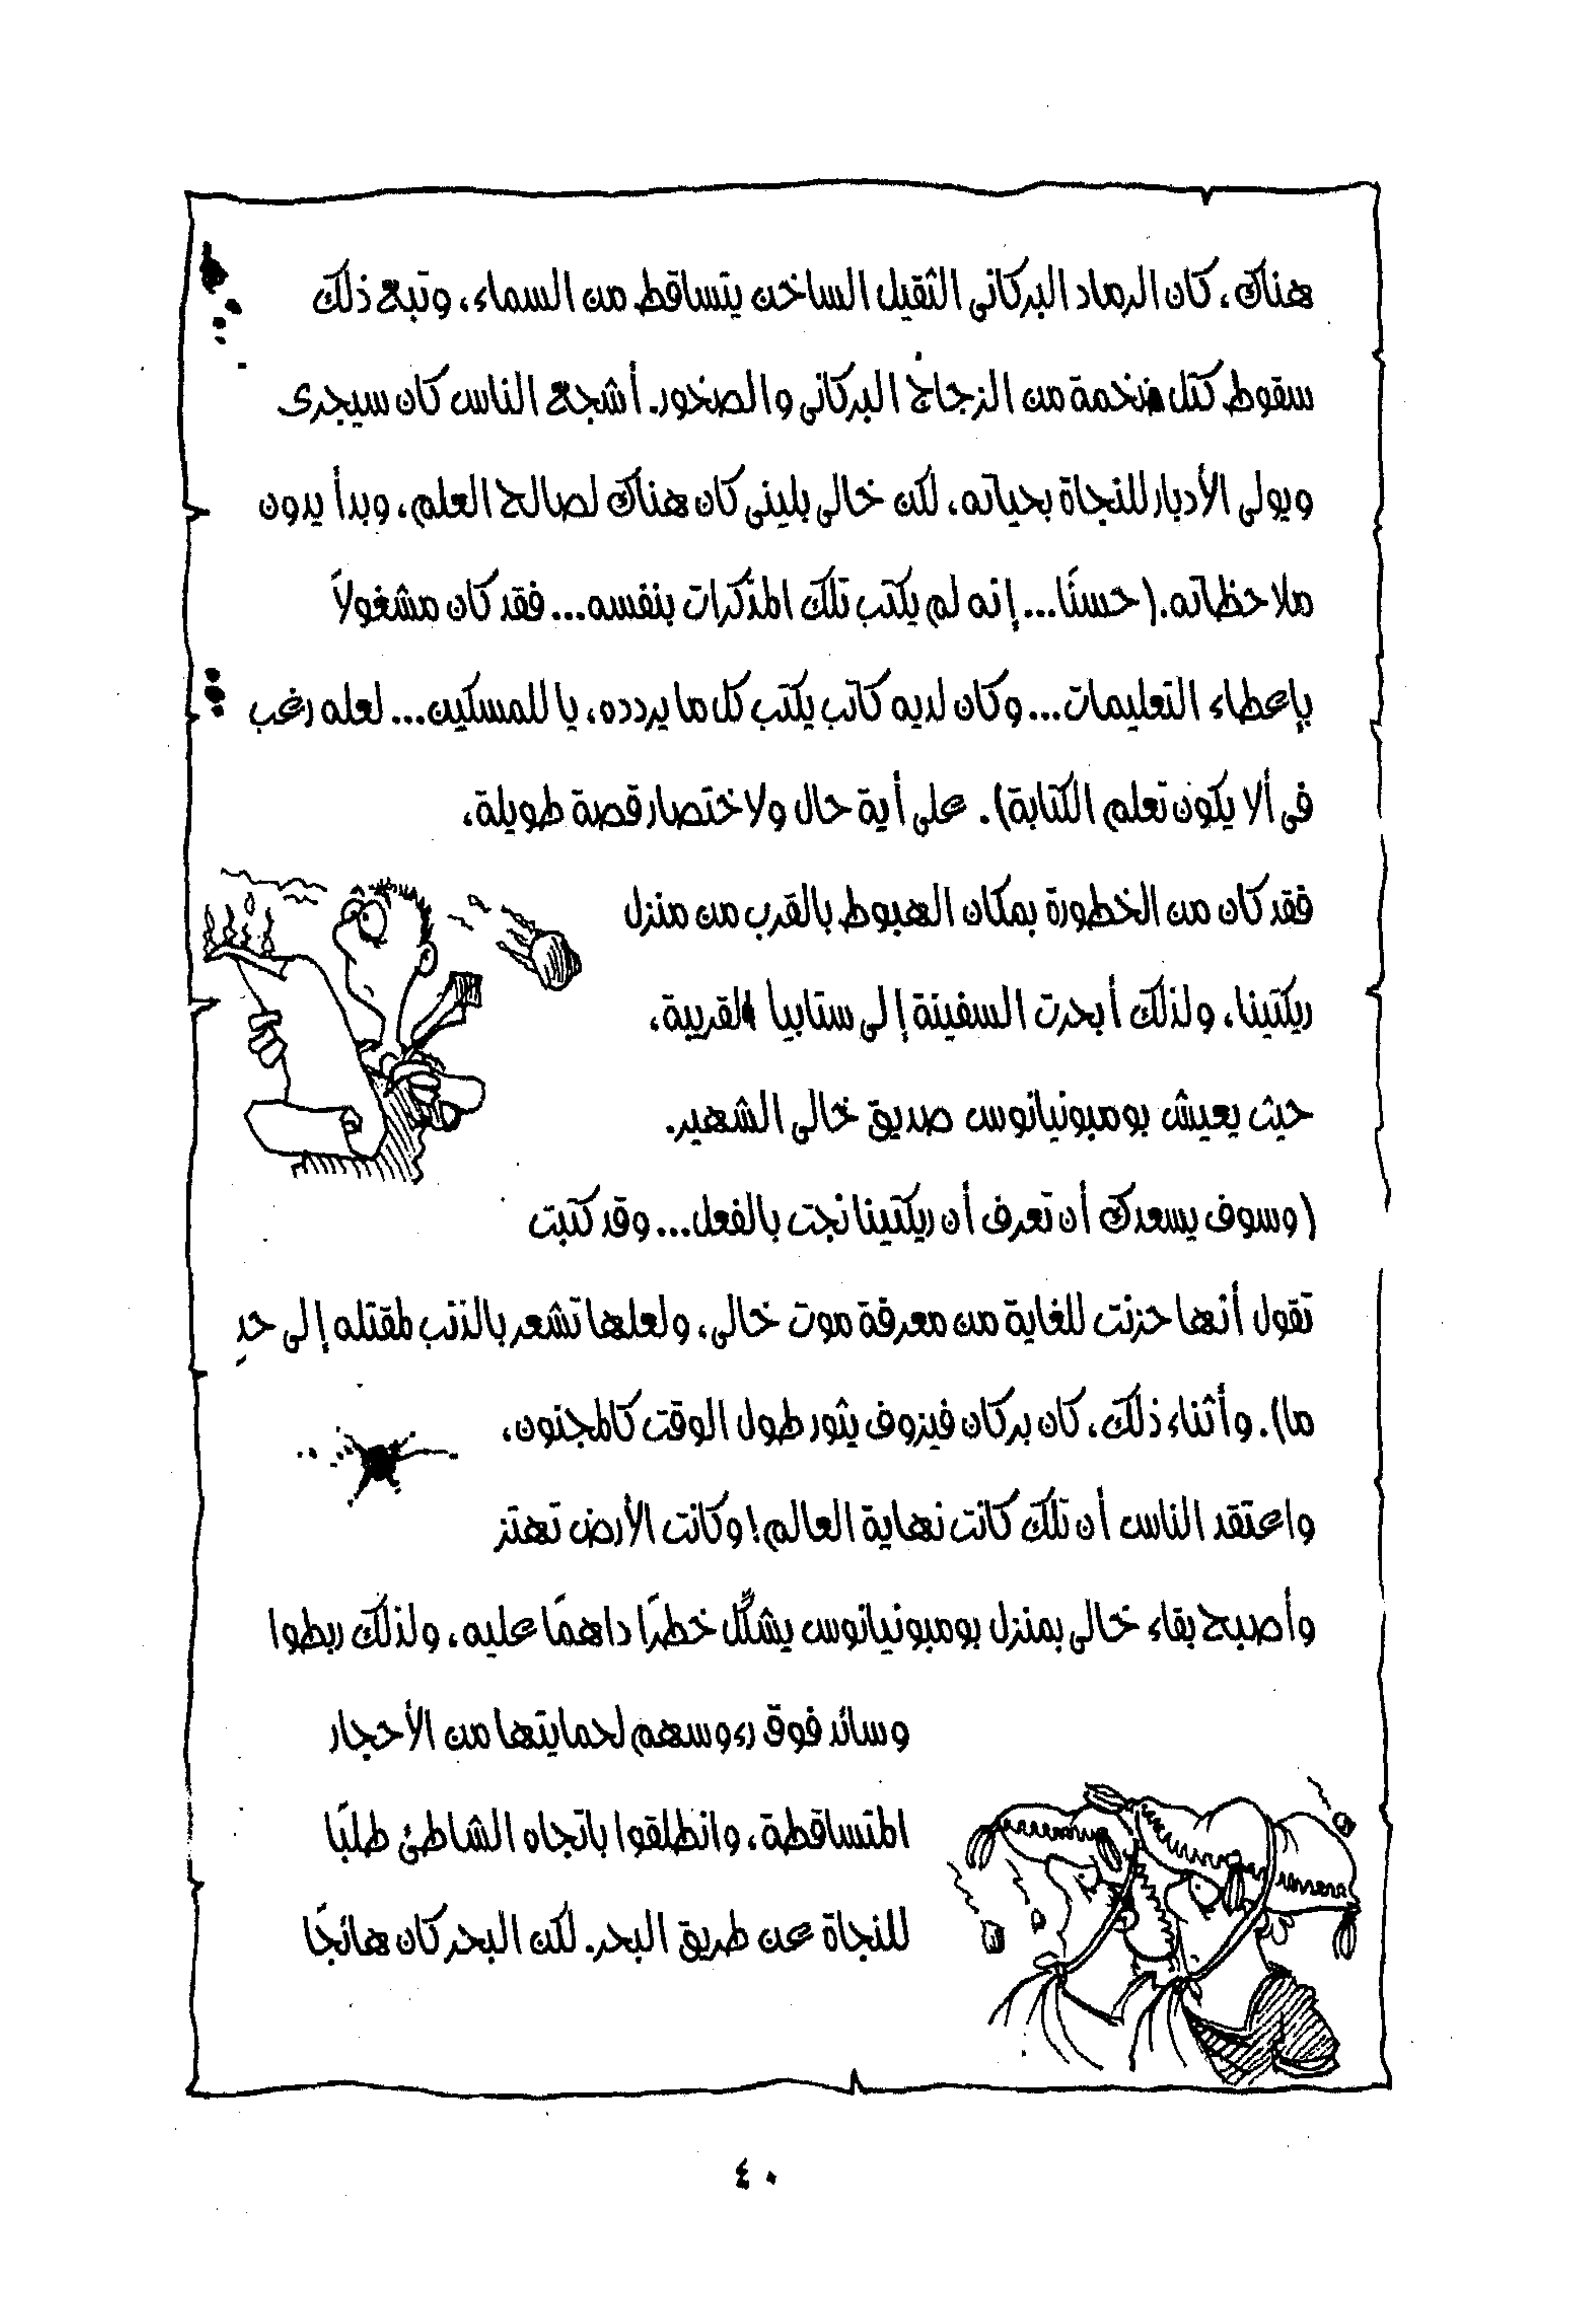 هناك، كان الرماد البركانى الثقيل الساخن يتساقط من السماء، وتبع ذلك
سقوط كتل ضخمة من الزجاج البركانى والصخور. أشجع الناس كان سيجرى
ويولى الأدبار للنجاة بحياته، لكن خالى بلينى كان هناك لصالح العلم، وبدأ يدون
ملاحظاته. (حسنًا... إنه لم يكتب تلك المذكرات بنفسه... فقد كان مشغولاً
بإعطاء التعليمات... وكان لديه كاتب يكتب كل ما يردده، يا للمسكين... لعله رغب
فى ألا يكون تعلم الكتابة). على أية حال ولاختصار قصة طويلة،
فقد كان من الخطورة بمكان الهبوط بالقرب من منزل
ريكتينا، ولذلك أبحرت السفينة إلى ستابيا القريبة،
حيث يعيش بومبونيانوس صديق خالى الشهير.
(وسوف يسعدك أن تعرف أن ريكتينا نجت بالفعل... وقد كتبت
تقول أنها حزنت للغاية من معرفة موت خالى، ولعلها تشعر بالذنب لمقتله إلى حدٍ
ما). وأثناء ذلك، كان بركان فيزوف يثور طول الوقت كالمجنون،
واعتقد الناس أن تلك كانت نهاية العالم! وكانت الأرض تهتز
وأصبح بقاء خالى بمنزل بومبونيانوس يشكِّل خطرًا داهمًا عليه، ولذلك ربطوا
وسائد فوق رءوسهم لحمايتها من الأحجار
المتساقطة، وانطلقوا باتجاه الشاطئ طلبًا
للنجاة عن طريق البحر. لكن البحر كان هائجًا
٤٠